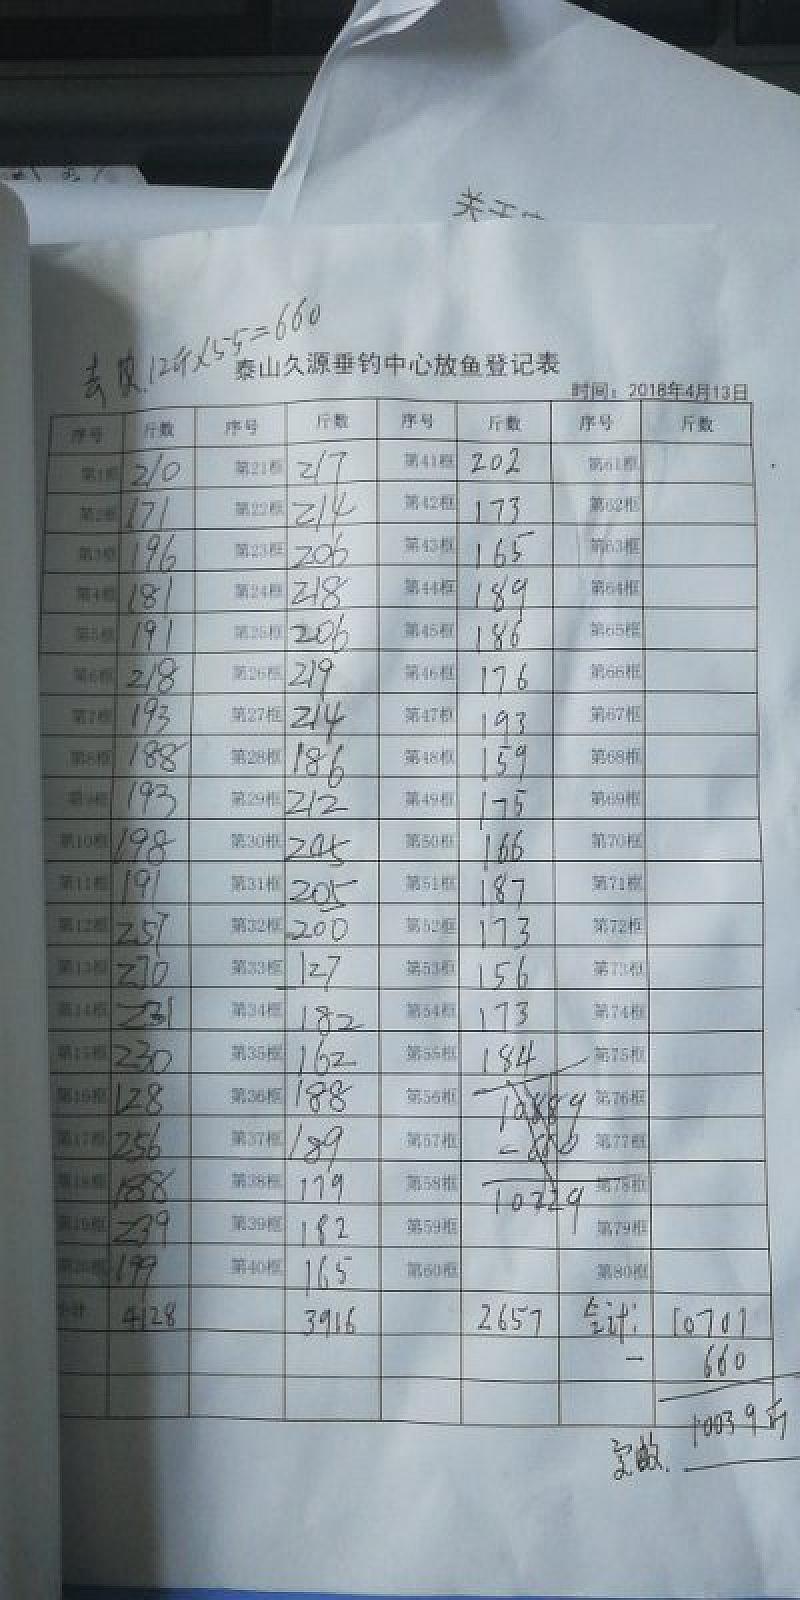 关工一
去皮.12斤×55=660
泰山久源垂钓中心放鱼登记表
时间：2018年4月13日
序号 斤数 序号 斤数 序号 斤数 序号 斤数
第1框 210 第21框 217 第41框 202 第61框
第2框 171 第22框 214 第42框 173 第62框
第3框 196 第23框 206 第43框 165 第63框
第4框 181 第24框 218 第44框 189 第64框
第5框 191 第25框 206 第45框 186 第65框
第6框 218 第26框 219 第46框 176 第66框
第7框 193 第27框 214 第47框 193 第67框
第8框 188 第28框 186 第48框 159 第68框
第9框 193 第29框 212 第49框 175 第69框
第10框 198 第30框 205 第50框 166 第70框
第11框 191 第31框 205 第51框 187 第71框
第12框 257 第32框 200 第52框 173 第72框
第13框 230 第33框 127 第53框 156 第73框
第14框 231 第34框 182 第54框 173 第74框
第15框 230 第35框 162 第55框 184 第75框
第16框 128 第36框 188 第56框 10889 第76框
第17框 256 第37框 189 第57框 -660 第77框
第18框 188 第38框 179 第58框 10229 第78框
第19框 239 第39框 182 第59框 第79框
第20框 199 第40框 165 第60框 第80框
小计 4128 3916 2657 合计: 10701
- 660
实放. 10039斤